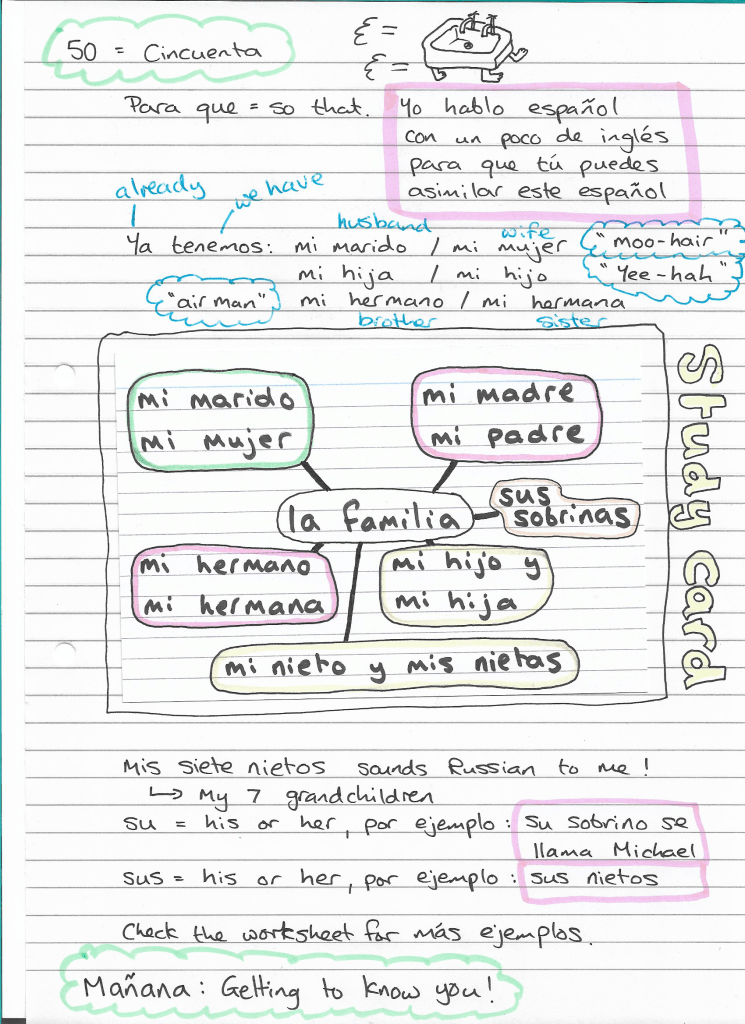 50 = Cincuenta
Para que = so that.
Yo hablo español
con un poco de inglés
para que tú puedes
asimilar este español
already
we have
husband
wife
Ya tenemos: mi marido / mi mujer "moo-hair"
mi hija / mi hijo "Yee-hah"
"air man" mi hermano / mi hermana
brother
sister
Study Card
mi marido
mi mujer
mi madre
mi padre
la familia
sus
sobrinas
mi hermano
mi hermana
mi hijo y
mi hija
mi nieto y mis nietas
Mis siete nietos sounds Russian to me!
↳ My 7 grandchildren
su = his or her, por ejemplo: su sobrino se
llama Michael
sus = his or her, por ejemplo: sus nietos
Check the worksheet for más ejemplos.
Mañana: Getting to know you!